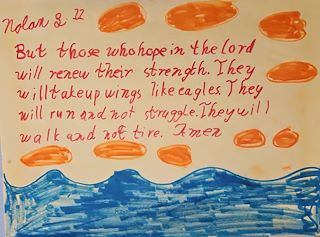 Nolan g. 12
But those who hope in the lord
will renew their strength. They
will take up wings like eagles. They
will run and not struggle. They will
walk and not tire. Amen